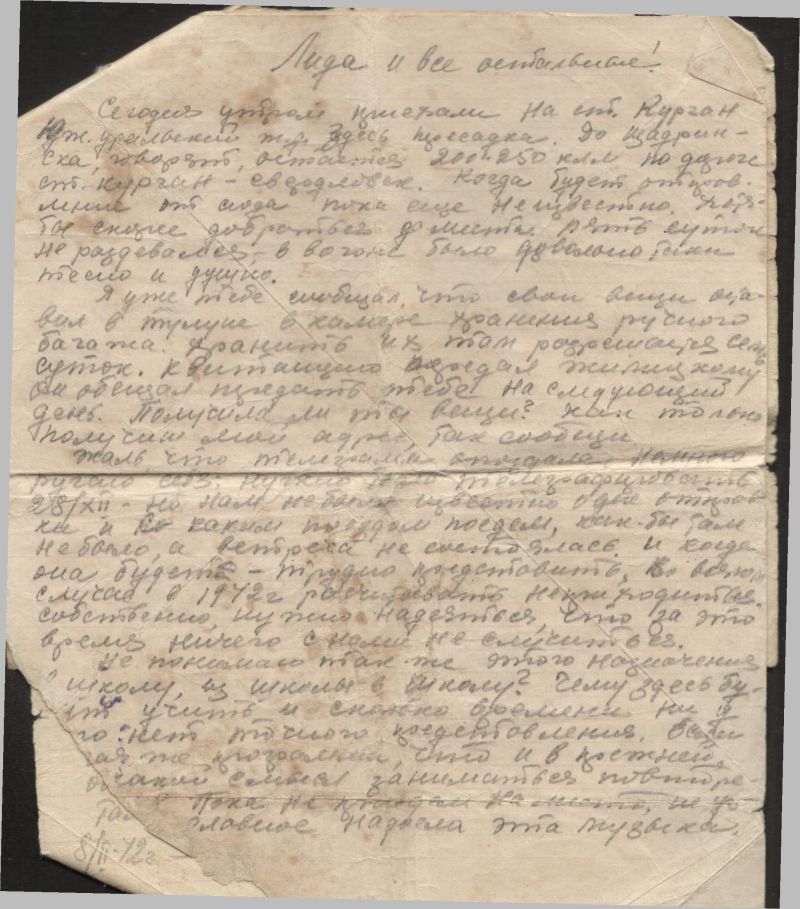 Лида и все остальные!
Сегодня утром приехали на ст. Курган
Юж. уральский ж.д. Здесь пересадка. До Шадрин-
ска, говорят, остается 200-250 клм по дороге
ст. Курган – Свердловск. Когда будет отправ-
ление от сюда пока еще неизвестно. Хотя
бы скорее добраться до места. Пять суток
не раздевался – в вагоне было довольно таки
тесно и душно.
Я уже тебе сообщал, что свои вещи оста-
вил в Тулуне в камере хранения ручного
багажа. Хранить их там разрешается семь
суток. Квитанцию передал Жилицкому
он обещал предать тебе на следующий
день. Получила ли ты вещи? Как только
получиш мой адрес так сообщи.
Жаль что телеграма опоздала. Немного
ругаю себя: нужно было телеграфировать
28/XII – но нам не было известно о дне отправ
ки и с каким поездом поедем, как-бы там
небыло, а встреча не состоялась. И когда
она будет – трудно представить, во всяком
случае в 1942г расчитывать не приходиться.
собственно, нужно надеяться, что за это
время ничего с нами не случиться.
Не понимаю так-же этого назначения
школу, из школы в школу? Чему здесь бу-
дут учить и сколько времени ни у
го нет точного представления. Если
та же программа, что и в прежней,
какой смысл заниматься повторе-
Пока не приедем на место, не
главное надоела эта музыка.
8/II-42г